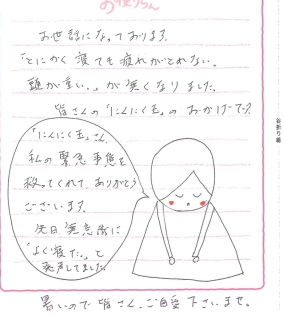 お便りちゃん
お世話になっております。
「とにかく寝ても疲れがとれない。
頭が重い。」が無くなりました。
皆さんの「にんにく玉」のおかげです。
「にんにく玉」さん、
私の緊急事態を
救ってくれて、ありがとう
ございます。
先日、無意識に
「よく寝た。」と
発声してました。
暑いので皆さん、ご自愛下さいませ。
谷折り線